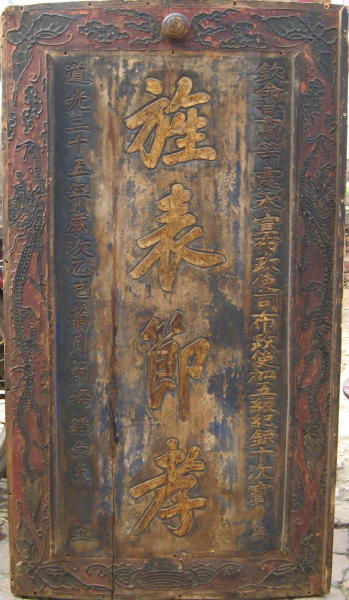 欽命甘肅等處承宣布政使司布政使加五級紀錄十次
旌表節孝
道光二十五年歲次乙巳菊月 立